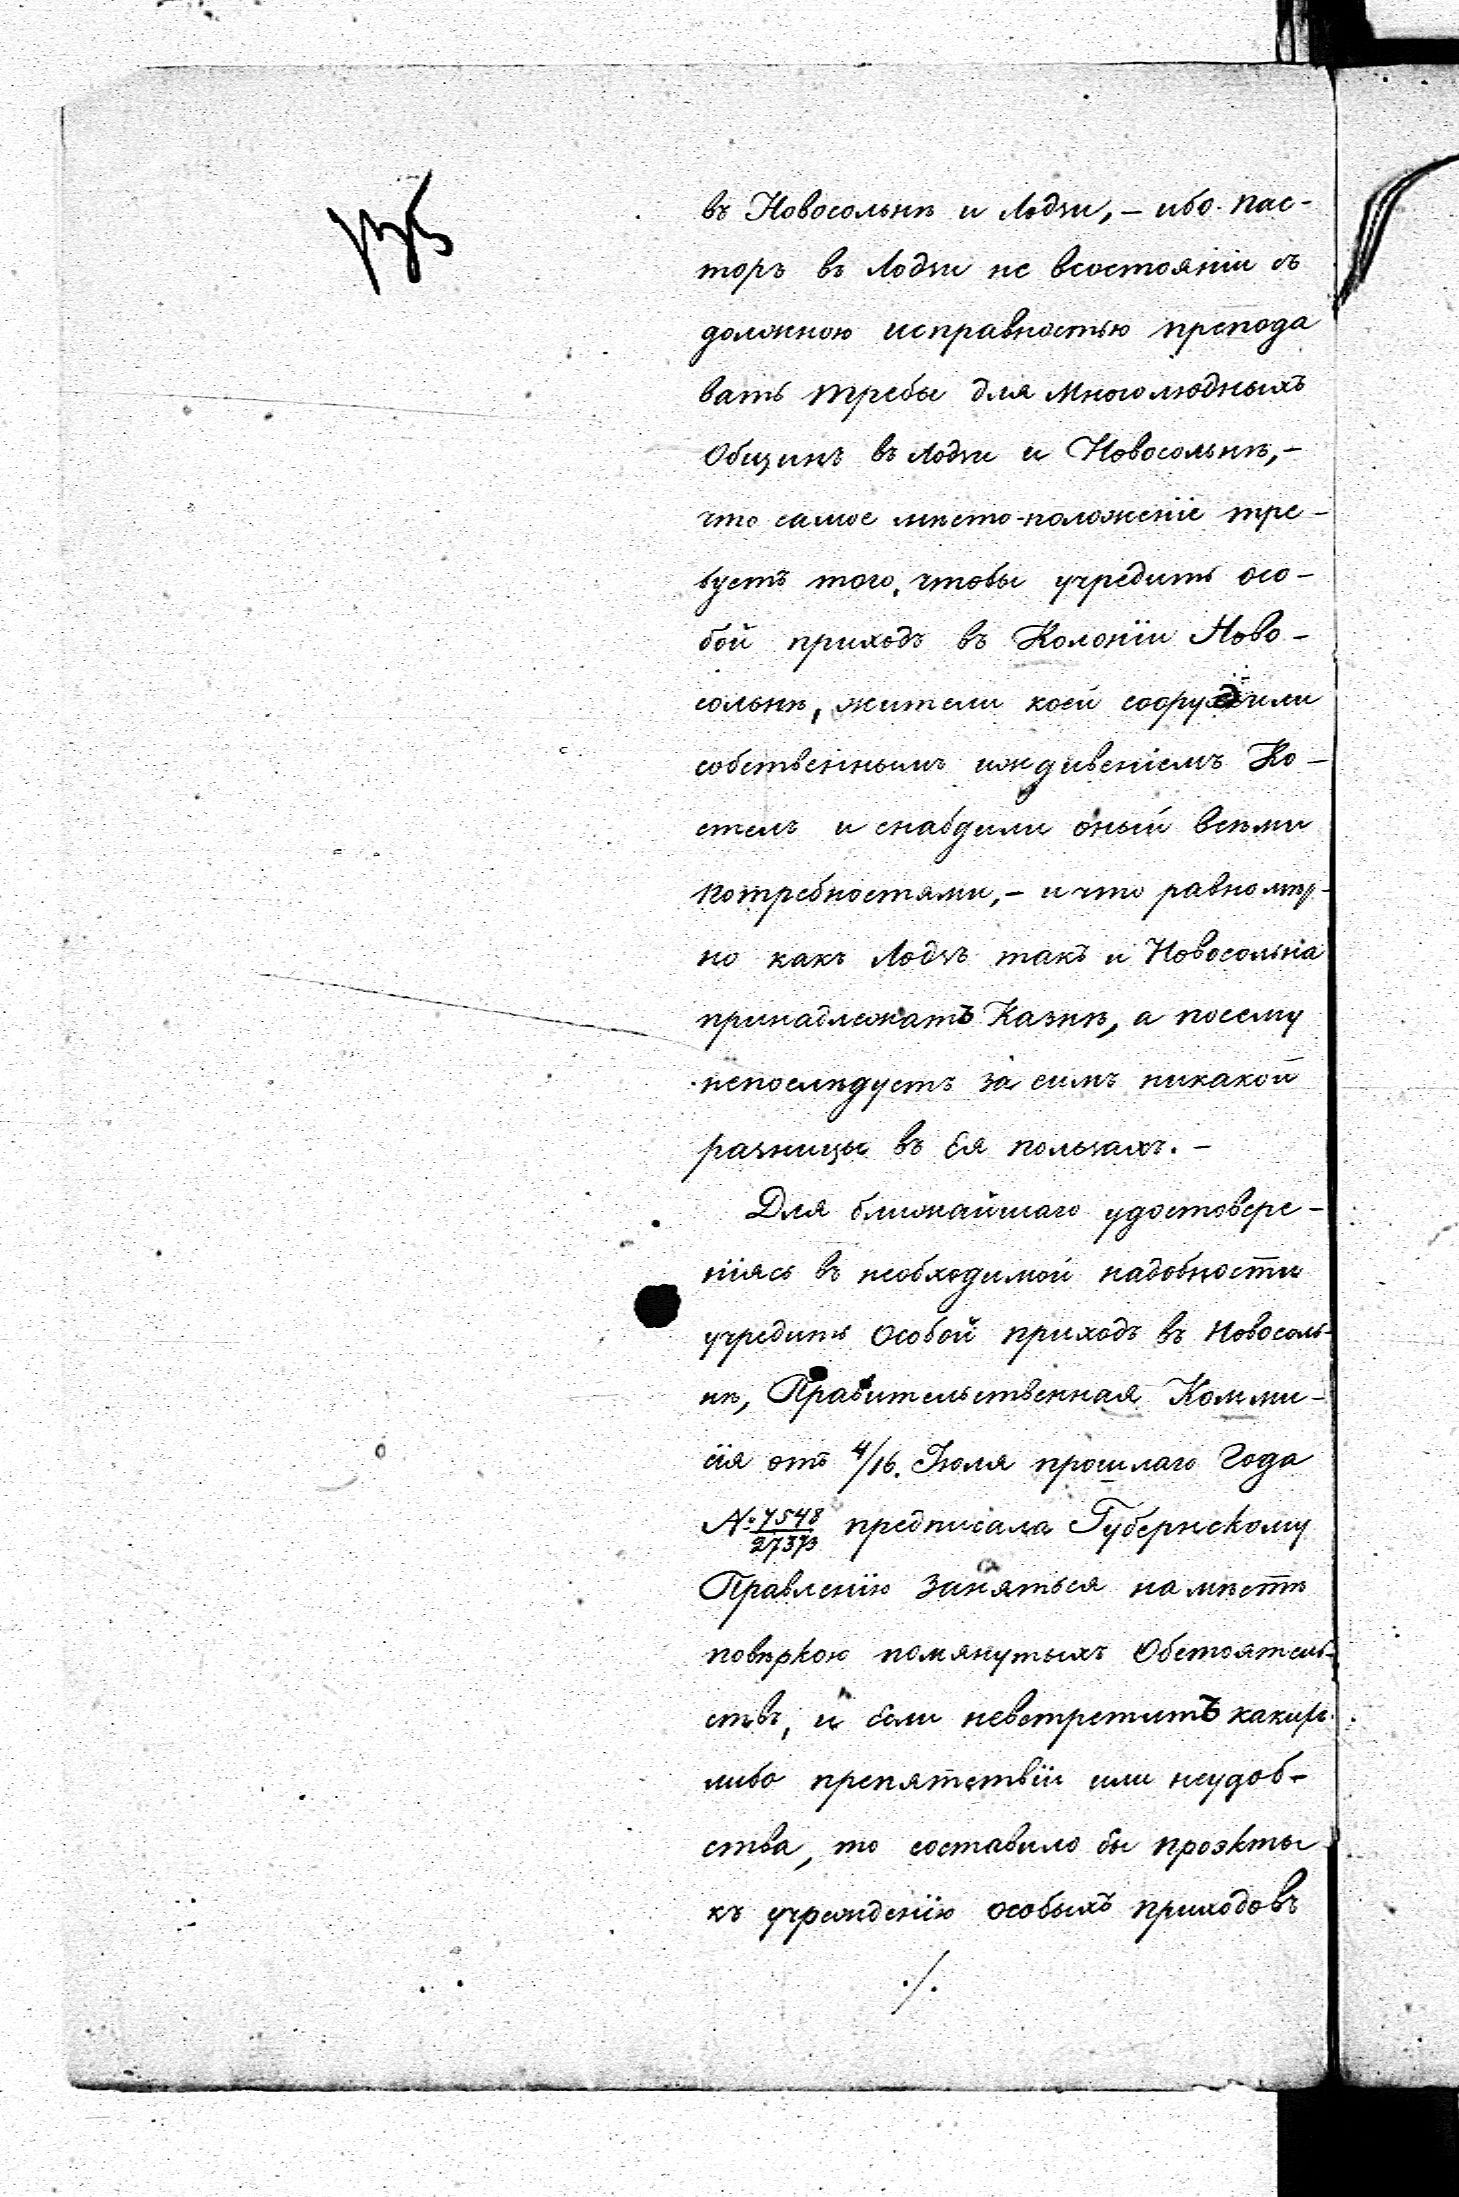 въ Новосольнѣ и Лодзи, – ибо пас-
торъ въ Лодзи не всостоянiи съ
должною исправностью препода
вать требы для многолюдныхъ
Общинъ въ Лодзи и Новосольнѣ, –
что самое мѣсто-положенiе тре-
буетъ того, чтобы учредить осо-
бой приходъ въ Колонiи Ново-
сольнѣ, жители коей соорудили
собственнымъ иждивенiемъ Ко-
стелъ и снабдили оный всѣми
потребностями, – и что равномѣр-
но какъ Лодзь такъ и Новосольна
принадлежатъ Казнѣ, а посему
непослѣдуетъ за симъ никакой
разницы въ Ея пользахъ. –
Для ближайшаго удостовере-
нiясь въ необходимой надобности
учредить особой приходъ въ Новосоль-
нѣ, Правительственная Комми-
сiя отъ 4/16. Iюля прошлаго Года
№ 7548/27373 предписала Губернскому
Правленiю заняться на мѣстѣ
повѣркою помянутыхъ Обстоятель-
ствъ, и если невстретитъ какихъ
либо препятствiи или неудоб-
ства, то составило бы проэкты
къ учрежденiю особыхъ приходовъ
./.